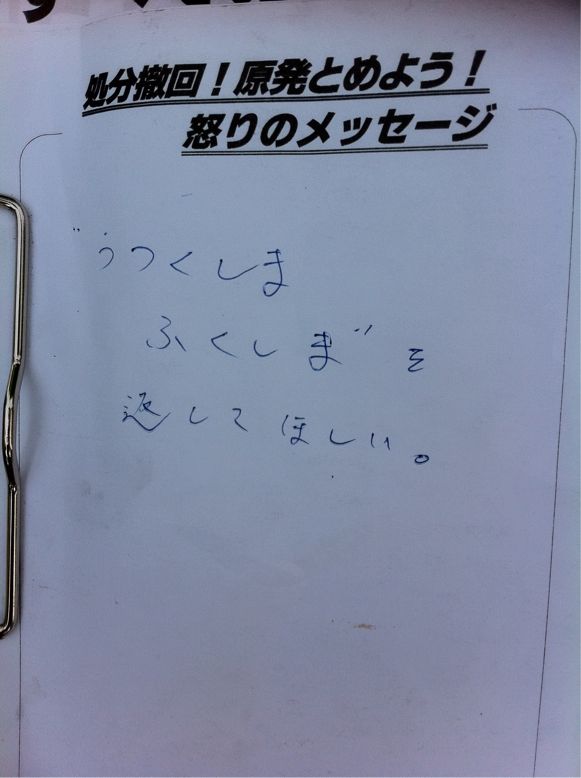 処分撤回！原発とめよう！
怒りのメッセージ
"うつくしま
ふくしま"を
返してほしい。